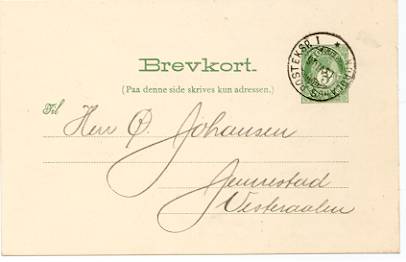 Brevkort.
(Paa denne side skrives kun adressen.)
Til
Herr Ø. Johansen
Jennestad
Vesteraalen
POSTEKSP. 1